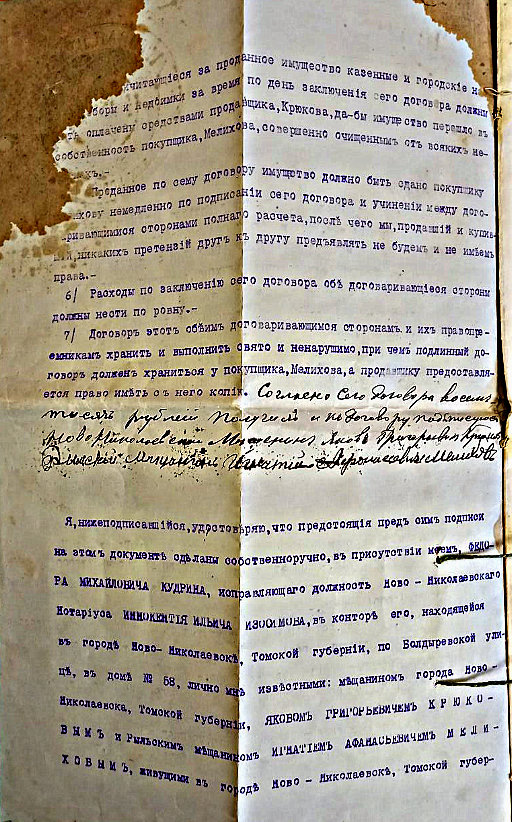 читающіеся за проданное имущество казенные и городскіе на-
боры и недоимки за время по день заключенія сего договора должны
оплачены средствами продавщика, Крюкова, да-бы имущество перешло въ
собственность покупщика, Мелихова, совершенно очищеннымъ отъ всякихъ не-
Проданное по сему договору имущество должно быть сдано покупщику
хову немедленно по подписаніи сего договора и учиненіи между дого-
варивающимися сторонами полнаго расчета, послѣ чего мы, продавшій и купив-
шій, никакихъ претензій другъ къ другу предъявлять не будемъ и не имѣемъ
права.-
6/ Расходы по заключенію сего договора обѣ договаривающіеся стороны
должны нести по ровну.-
7/ Договоръ этотъ обѣимъ договаривающимся сторонамъ и ихъ правопре-
емникамъ хранить и выполнить свято и ненарушимо, при чемъ подлинный до-
говоръ долженъ храниться у покупщика, Мелихова, а продавщику предоставля-
ется право имѣть съ него копію. Согласно сего договора восемь
тысячъ рублей получилъ и къ договору подписуюсь
Ново Николаевскій Мещанинъ Яковъ Григорьевъ Крюковъ
Рыльскій мещанинъ Игнатій Афанасьевъ Мелиховъ
Я, нижеподписавшійся, удостовѣряю, что предстоящія предъ симъ подписи
на этомъ документѣ сдѣланы собственноручно, въ присутствіи моемъ, ФЕДО-
РА МИХАЙЛОВИЧА КУДРИНА, исправляющаго должность Ново - Николаевскаго
Нотаріуса ИННОКЕНТІЯ ИЛЬИЧА ИЗОСИМОВА, въ конторѣ его, находящейся
въ городѣ Ново- Николаевскѣ, Томской губерніи, по Болдыревской ули-
цѣ, въ домѣ № 58, лично мнѣ извѣстными: мѣщаниномъ города Ново -
Николаевска, Томской губерніи, ЯКОВОМЪ ГРИГОРЬЕВИЧЕМЪ К Р Ю К О -
В Ы М Ъ и Рыльскимъ мѣщаниномъ ИГНАТІЕМЪ АФАНАСЬЕВИЧЕМЪ М Е Л И -
Х О В Ы М Ъ, живущими въ городѣ Ново - Николаевскѣ, Томской губер-